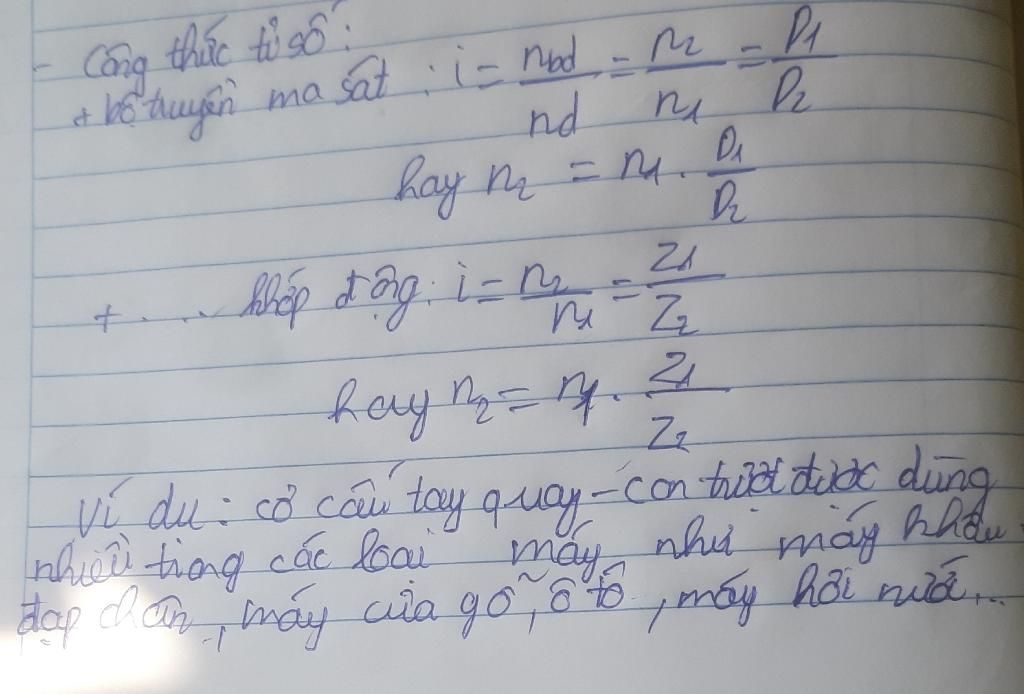 - Công thức tỉ số :
+ bộ truyền ma sát : i = nbd/nd = n2/n1 = D1/D2
hay n2 = n1 . D1/D2
+ . . . . khớp động : i = n2/n1 = Z1/Z2
hay n2 = n1 . Z1/Z2
Ví dụ : cơ cấu tay quay - con trượt được dùng
nhiều trong các loại máy như máy khâu
đạp chân, máy cưa gỗ, ô tô, máy hơi nước...